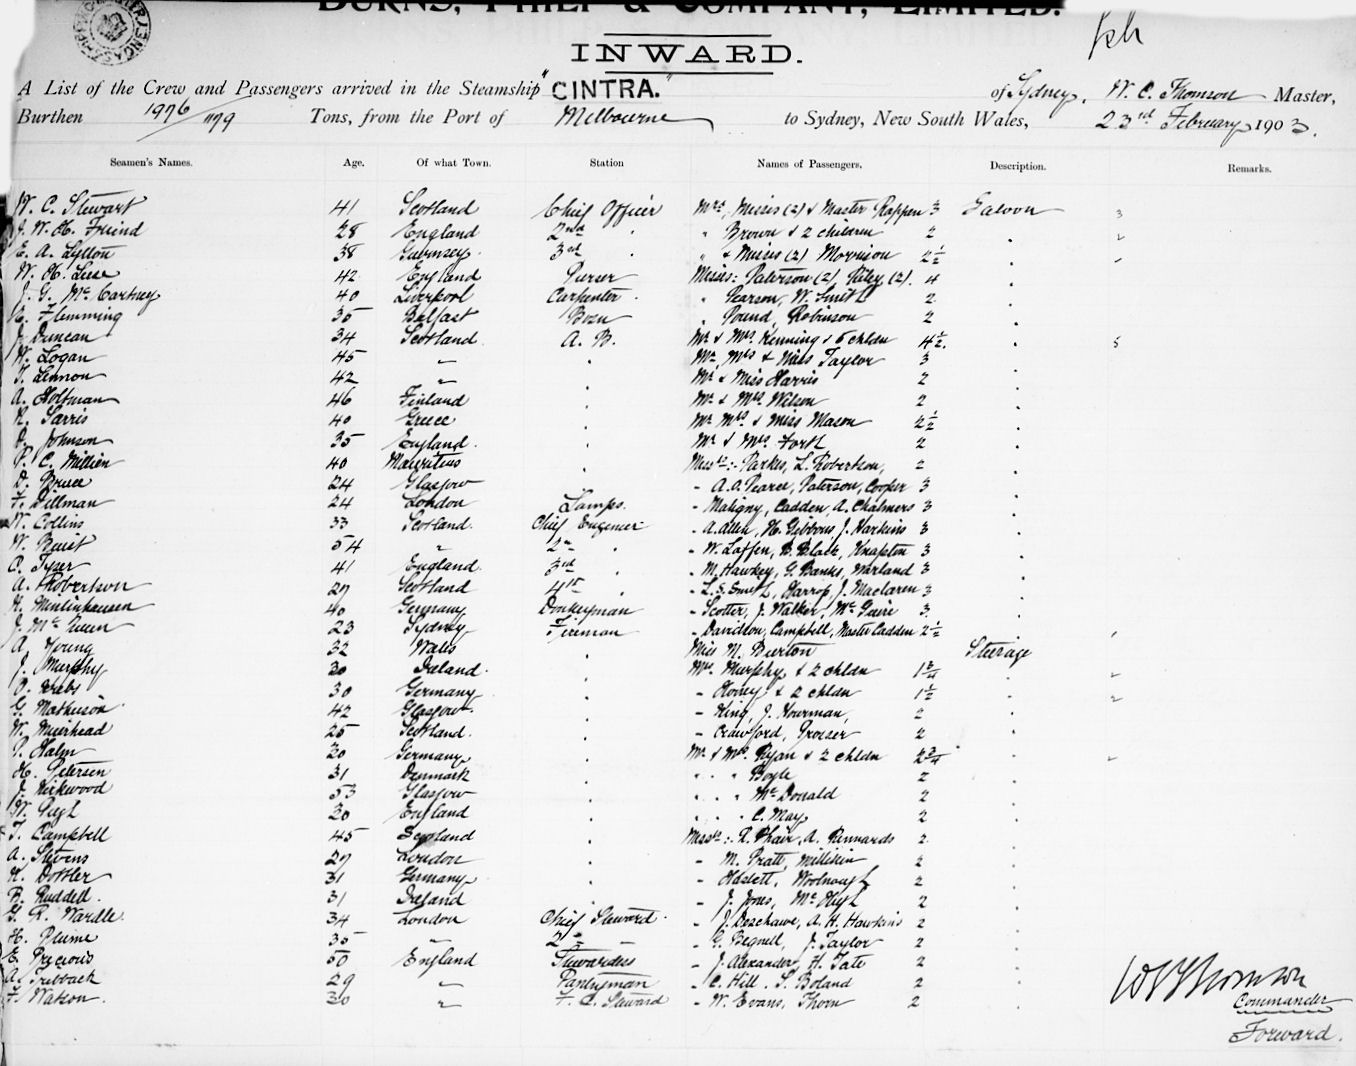 BURNS, PHILP & COMPANY, LIMITED.
INWARD.
A List of the Crew and Passengers arrived in the Steamship "CINTRA." of Sydney, W. C. Thomson Master,
Burthen 1976/1179 Tons, from the Port of Melbourne to Sydney, New South Wales, 23rd February 1903.
Seamen's Names. Age. Of what Town. Station Names of Passengers. Description. Remarks.
W. C. Stewart 41 Scotland Chief Officer Mrs, Misses (2) & Master Rappen 3 Saloon 3
J. W. H. Friend 28 England 2nd " " Brown & 2 children 2 " 2
E. A. Lytton 38 Guernsey 3rd " " & Misses (2) Morrison 2½ "
W. H. 42 England Purser Misses: Paterson (2) Kiley (2). 4 "
J. G. McCartney 40 Liverpool Carpenter " Pearson, W. Smith 2 "
Flemming 35 Belfast Bosn " Pound, Robinson 2 "
J. Duncan 34 Scotland A. B. Mr & Mrs. Kenning & 5 chldn 4½ " 5
W. Logan 45 " " Mr, Mrs & Miss Taylor 3 "
T. Lennon 42 " " Mr & Miss Harris 2 "
A. Holtman 46 Finland " Mr & Mrs Wilson 2 "
N. Sarris 40 Greece " Mr Mrs & Miss Mason 2½ "
Johnson 35 England " Mr & Mrs Forth 2 "
P. C. Millien 40 Mauritius " Messrs:- Parkes, L. Robertson, 2 "
D. Bruce 24 Glasgow " - A. O. Pearce, Paterson, Cooper 3 "
F. Dillman 24 London Lamps. - Maligny, Cadden, A. Chalmers 3 "
W. Collins 33 Scotland Chief Engineer - A. Allen, H. Gibbons, J. Harkins 3 "
W. Baist 54 " 2nd " - W. Laffen, B. Black, Knapton 3 "
C. Tyser 41 England 3rd " - M. Hawkey, G. Banks, Warland 3 "
A. Robertson 27 Scotland 4th " - L. S. Smith, Harrop, J. Maclaren 3 "
H. Minlinhausen 40 Germany Donkeyman - Scotter, J. Walker, McGuire 3. "
J. McQueen 23 Sydney Fireman - Davidson, Campbell, Master Cadden 2½ "
A. Young 32 Wales " Miss M. Burton Steerage
J. Murphy 30 Ireland. " Mrs. Murphy & 2 chldn 1¾ " 2
O. Krebs 30 Germany " - Honey & 2 chldn 1½ " 2
G. Matheison 42 Glasgow " - King, J. Howman, 2 "
W. Muirhead 25 Scotland. " - Crawford, Prosser 2 "
P. Halm 20 Germany " Mr & Mrs. Ryan & 2 chldn 2¾ " 2
H. Petersen 31 Denmark " " " " Boyle 2 "
J. Kirkwood 53 Glasgow " " " " McDonald 2 "
W. Pugh 20 England " " " " C. May 2 "
T. Campbell 45 Scotland " Messrs:- R. Phair, A. Kennards 2 "
A. Stevens 27 London " - M. Pratt, Millikin 2 "
K. Dossler 31 Germany " - Haslett, Woolnough 2 "
R. Ruddell. 31 Ireland " - J. Jones, McHugh 2 "
G. R. Wardle. 34 London Chief Steward. - J. Deschawe, A. H. Hawkins 2 "
H. Plume 35 " 2nd " - G. Begnell, J. Taylor 2 "
E. Precious 50 England Stewardess - J. Alexander, H. Tate 2 "
A. Tribbach 29 " Pantryman - C. Hill. S. Boland 2 "
F. Watson. 30 " F. C. Steward - W. Evans, Thorn 2 "
W C Thomson
Commander
Forward.